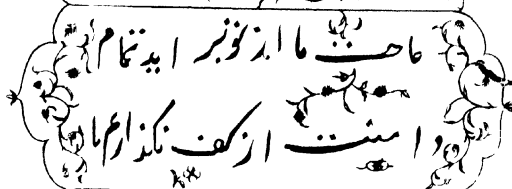 حاجت ما از تو بر اید تمام
دامنت از کف نگذاریم ما